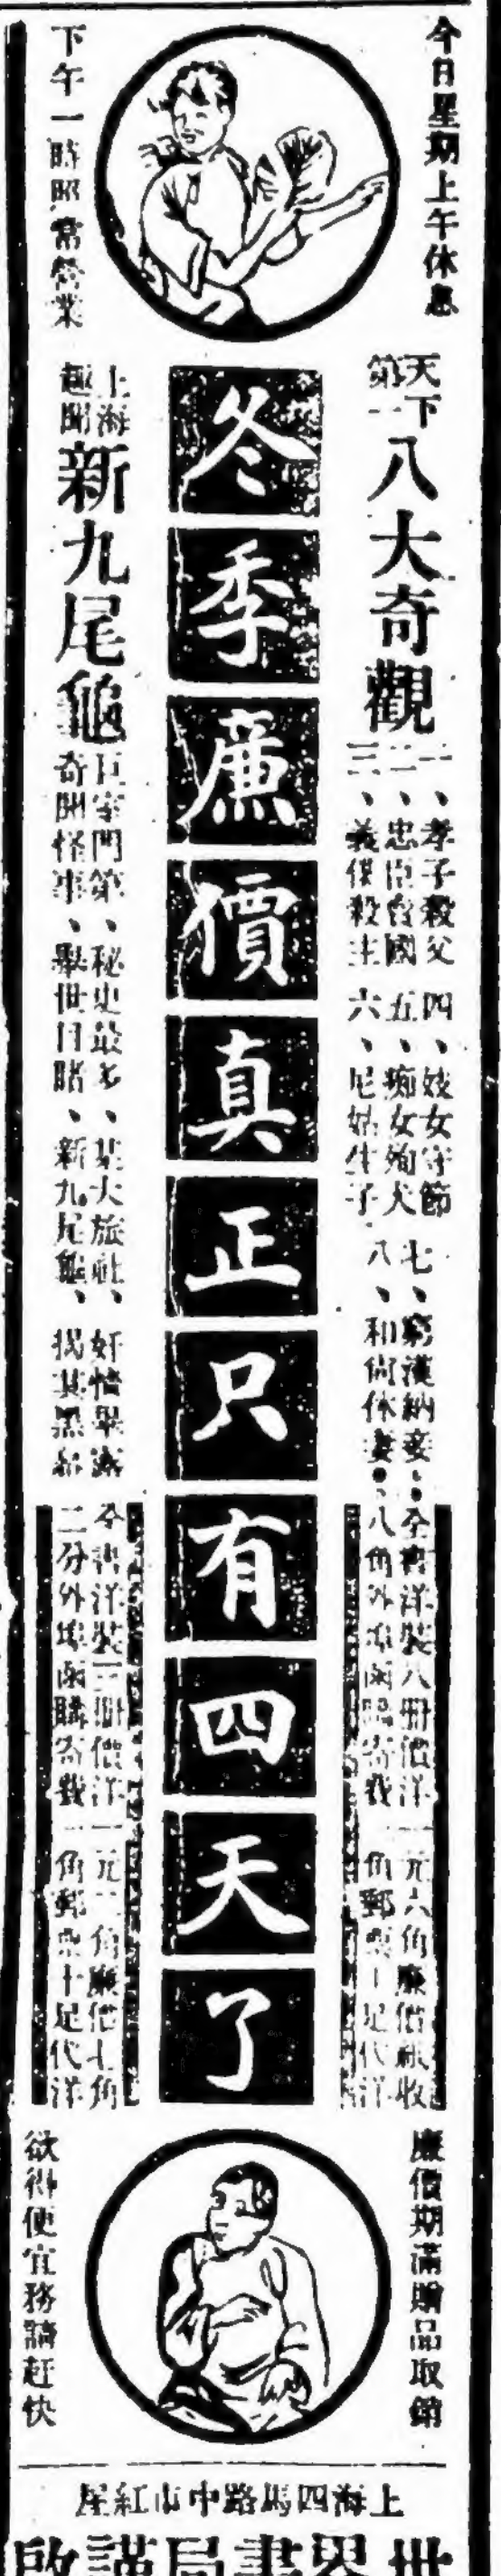 今日星期上午休息
下午一時照常營業
天下第一
八大奇觀
一、孝子殺父
二、忠臣賣國
三、義僕殺主
四、妓女守節
五、痴女殉犬
六、尼姑生子
七、窮漢納妾
八、和尚休妻
全書洋裝八冊價洋一元六角廉價祇收
八角外埠函購寄費一角郵票十足代洋
冬季廉價真正只有四天了
上海趣聞
新九尾龜
巨室門第、秘史最多、某大旅社、奸情畢露
奇聞怪事、舉世目睹、新九尾龜、揭其黑幕
全書洋裝二冊價洋一元二角廉價七角
二分外埠函購寄費一角郵票十足代洋
廉價期滿贈品取銷
欲得便宜務請赶快
上海四馬路中市紅屋
世界書局謹啟